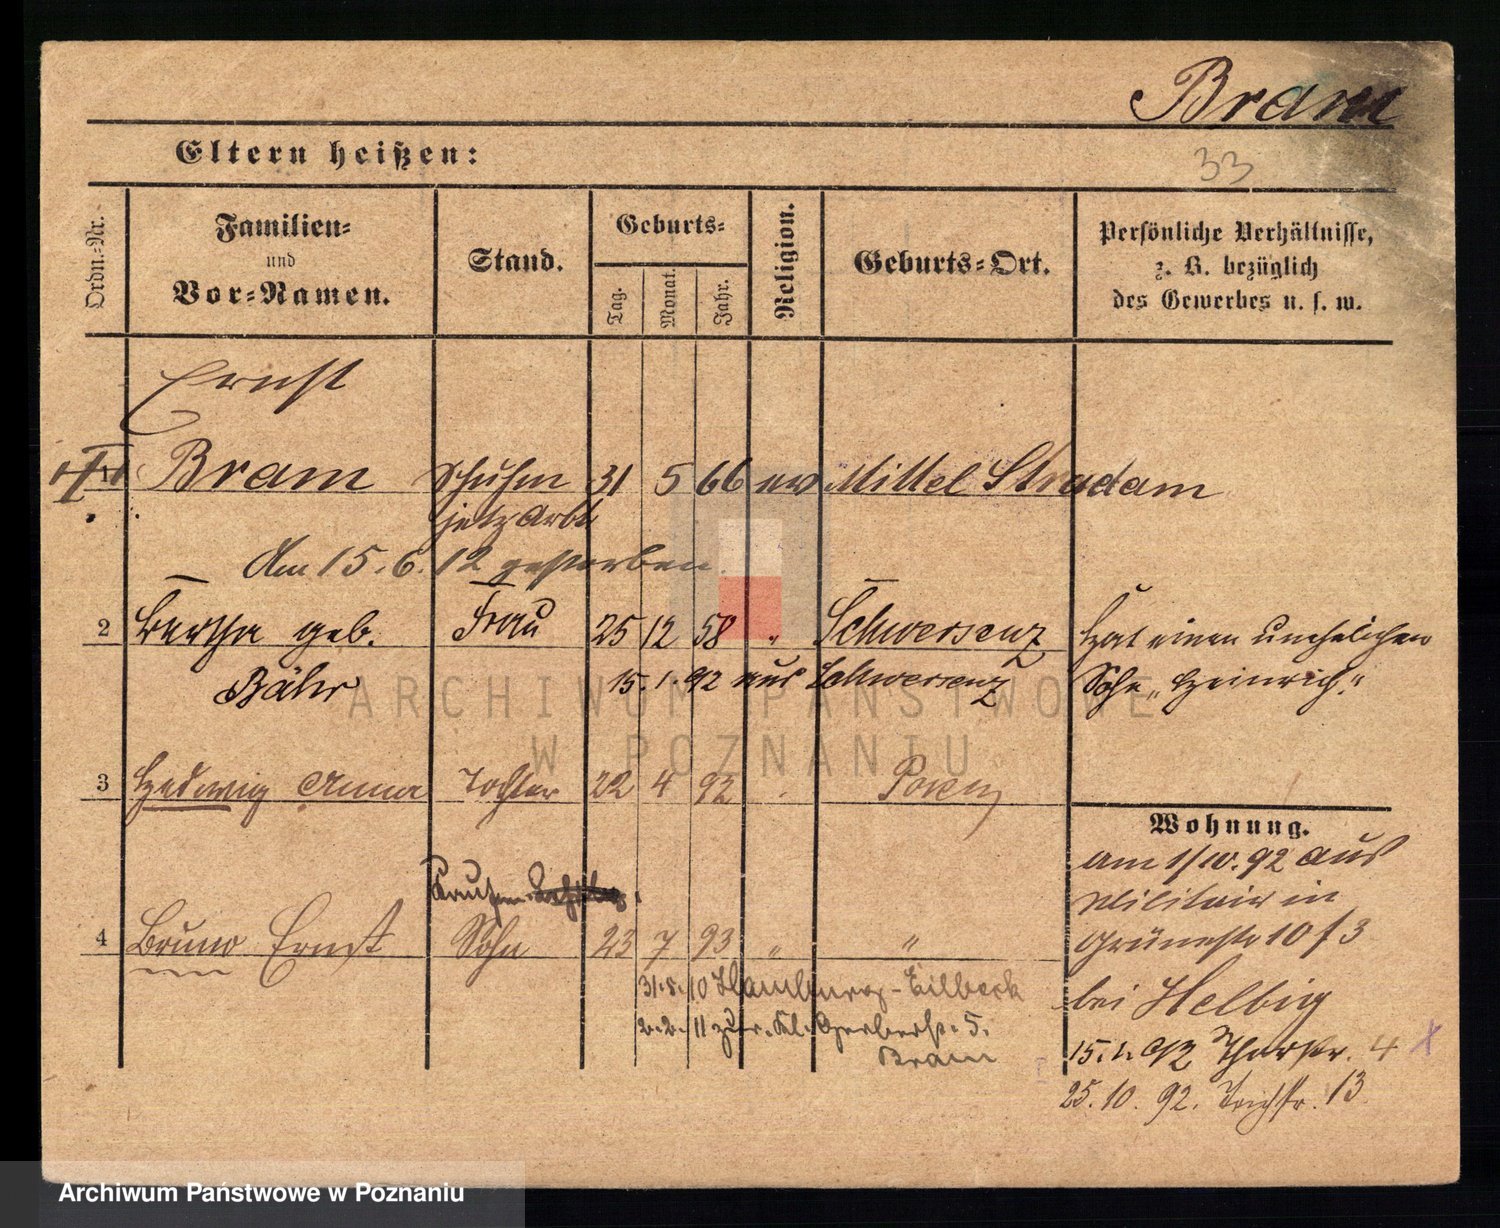 Bram
33
Eltern heißen:
Ordn.-Nr.
Familien-
und
Vor-Namen.
Stand.
Geburts-
Tag.
Monat.
Jahr.
Religion.
Geburts-Ort.
Persönliche Verhältnisse,
z. B. bezüglich
des Gewerbes u. s. w.
Ernst
1 Bram Schuhm 31 5 66 ev Mittel Stradam
jetz Arbt
Am 15.6.12 gestorben
2 Bertha geb. Frau 25 12 58 " Schwersenz Hat einen unehelichen
Bähr 15.1.92 aus Schwersenz Sohn "Heinrich".
3 Hedwig Anna Tochter 22 4 92 Posen
Wohnung.
am 1/10.92 aus
Militair in
4 Bruno Ernst Sohn 23 7 93 " "
Grünestr 10 f 3
31.8.10 Hamburg-Eilbeck
bei Helbig
2.2.11 zur. Kl. Gerberstr. 5.
Bram
15.1.92 Thorstr. 4
25.10.92. 13
ARCHIWUM PAŃSTWOWE
W POZNANIU
Archiwum Państwowe w Poznaniu